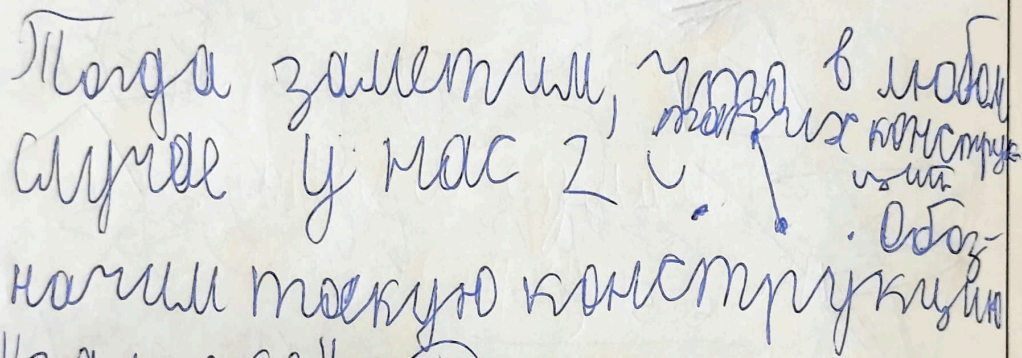 Тогда заметим, что в любом
случае у нас 2 таких конструк-
ций. Обоз-
начим такую конструкцию